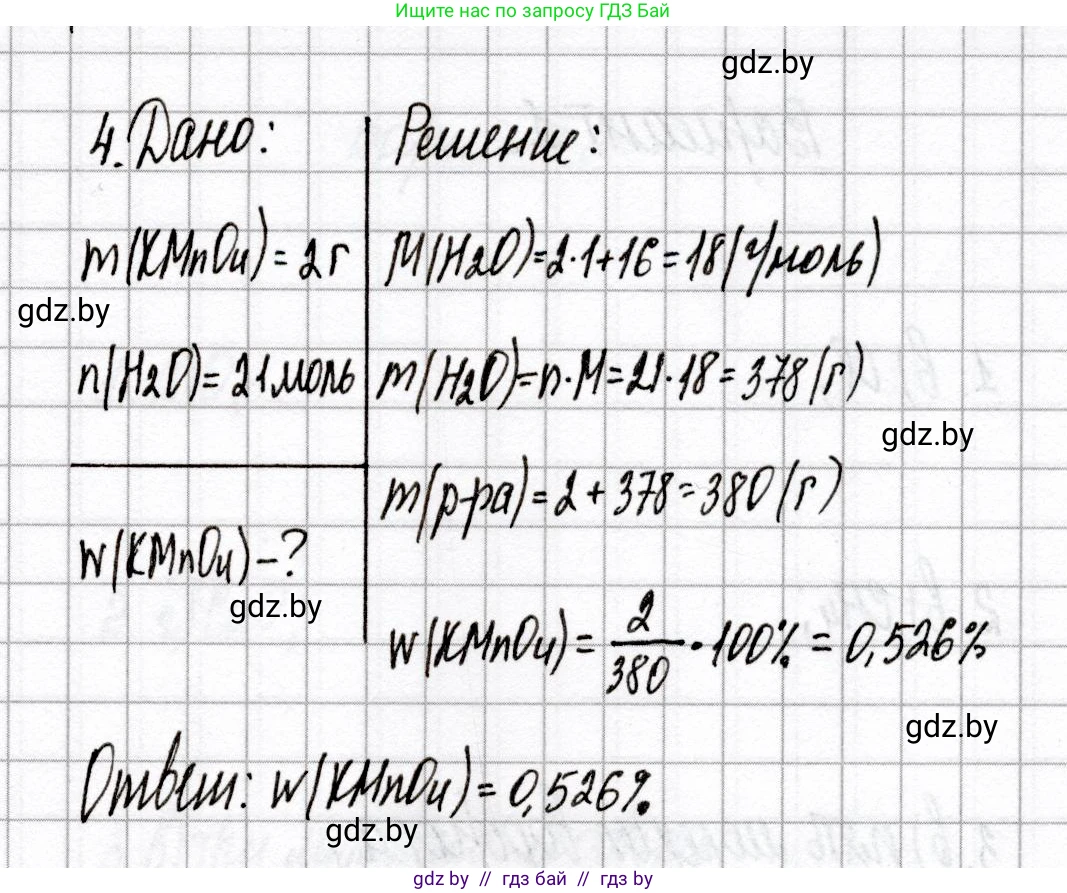 Ищите нас по запросу ГДЗ Бай
gdz.by
4. Дано:
Решение:
m(KMnO4) = 2 г
M(H2O) = 2·1+16 = 18 (г/моль)
gdz.by
n(H2O) = 21 моль
m(H2O) = n·M = 21·18 = 378 (г)
gdz.by
m(р-ра) = 2 + 378 = 380 (г)
w(KMnO4) - ?
gdz.by
w(KMnO4) = 2/380 · 100% = 0,526%
gdz.by
Ответ: w(KMnO4) = 0,526%.
gdz.by
gdz by // гдз бай // гдз by